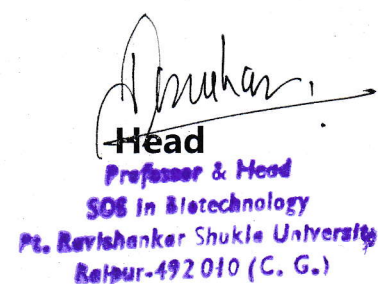 Head
Professor & Head
SOS in Biotechnology
Pt. Ravishankar Shukla University
Raipur-492010 (C. G.)